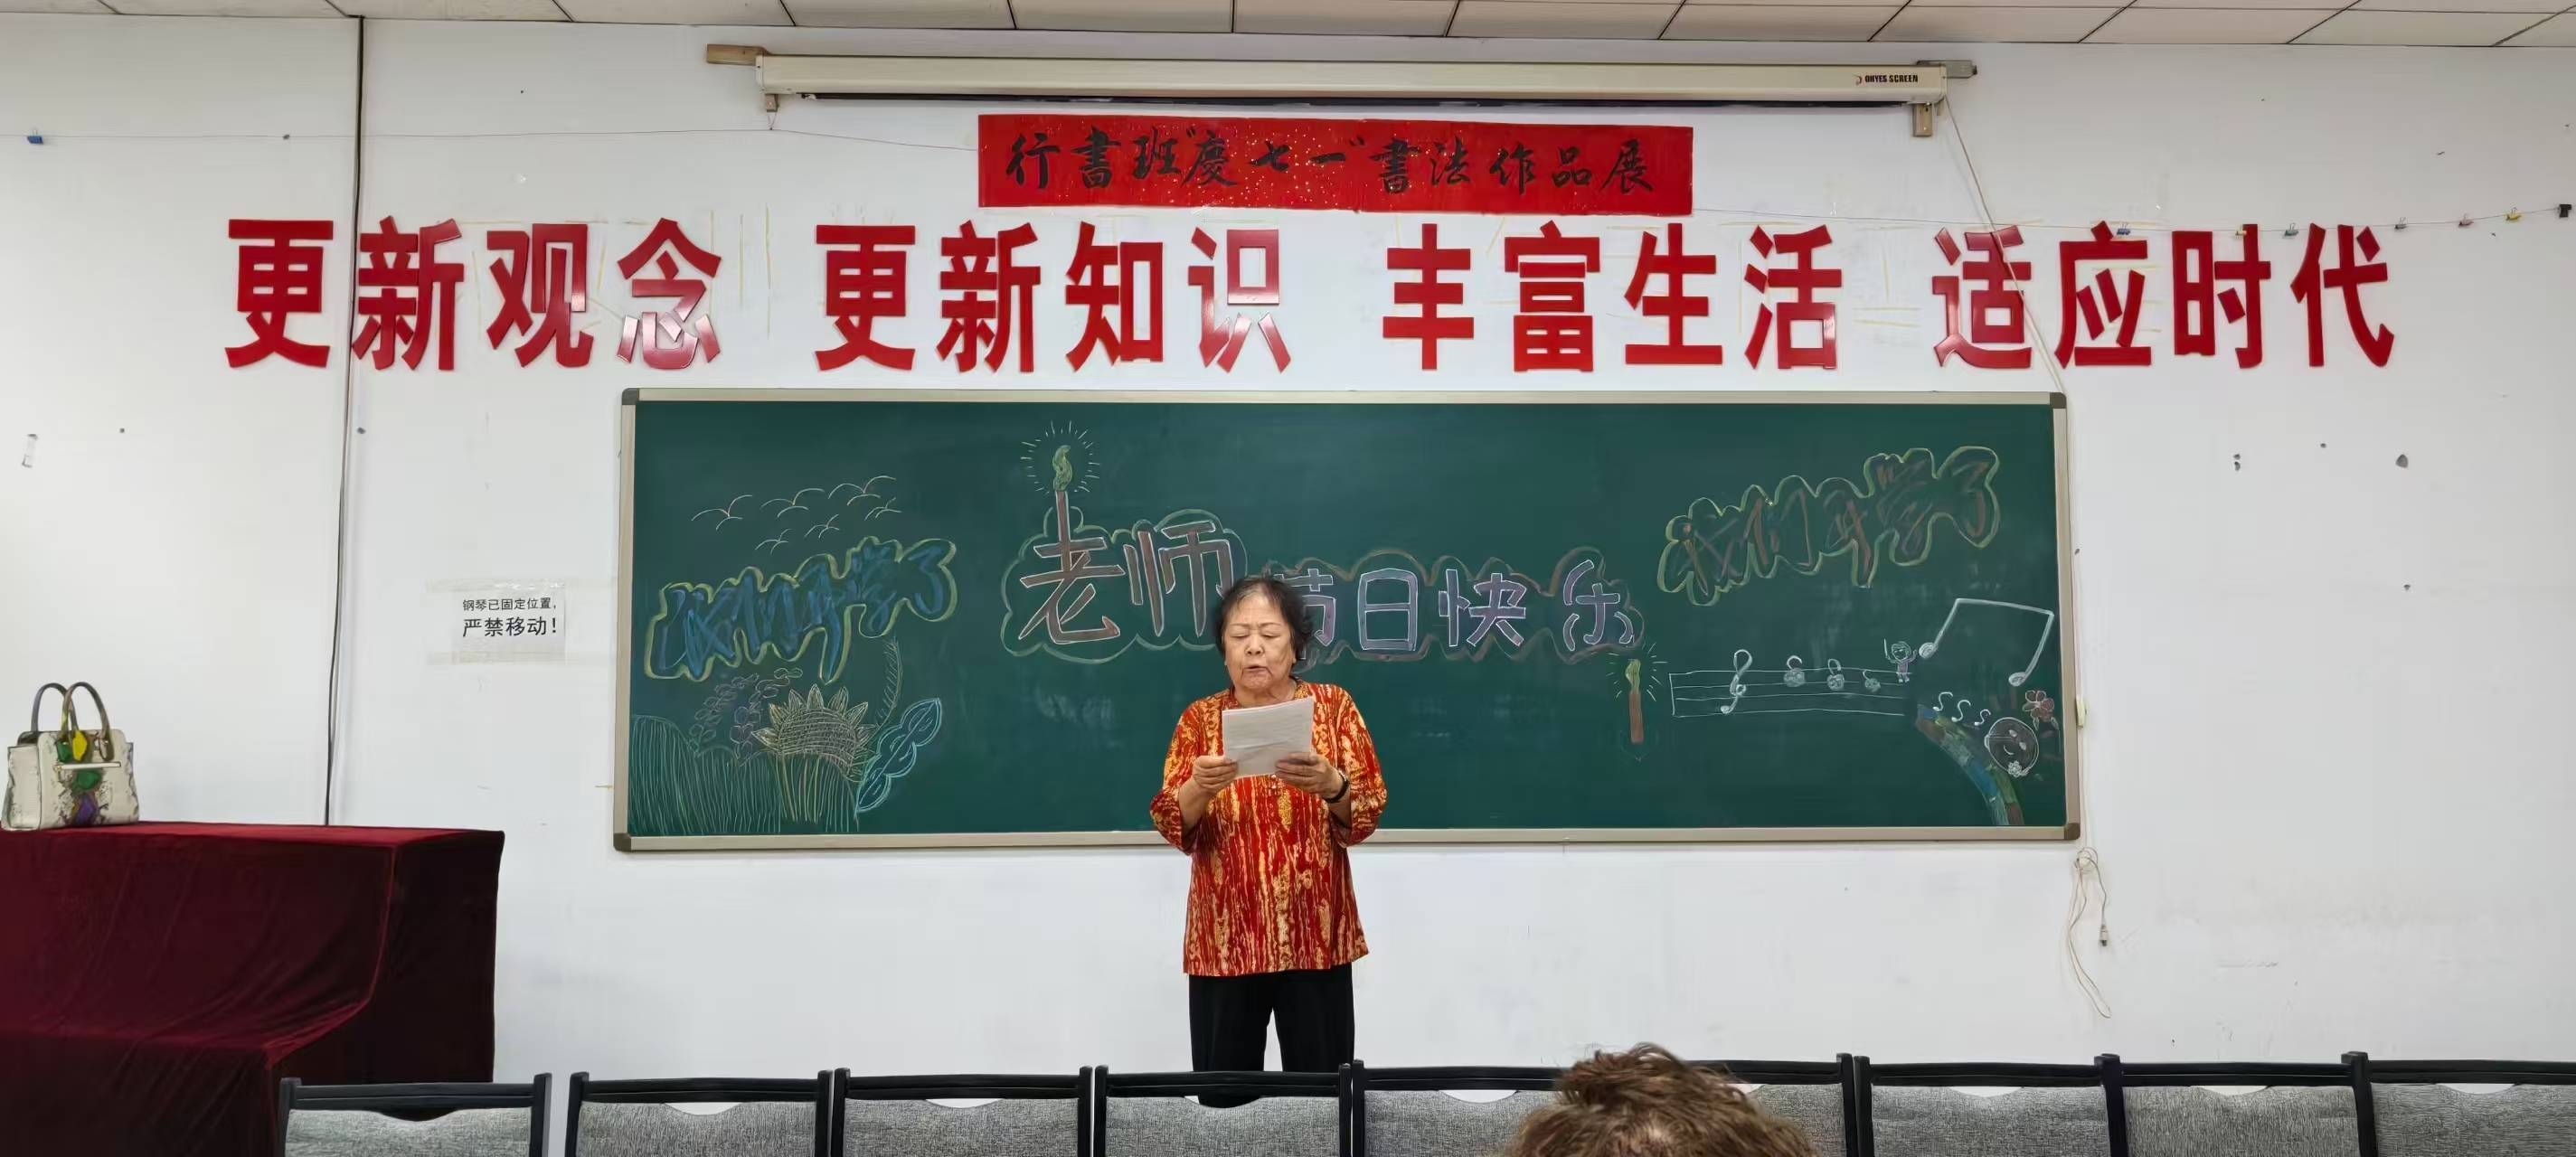 OHYES SCREEN
行書班"慶七一"書法作品展
更新观念 更新知识 丰富生活 适应时代
我们开学了
老师节日快乐
我们开学了
钢琴已固定位置，
严禁移动！